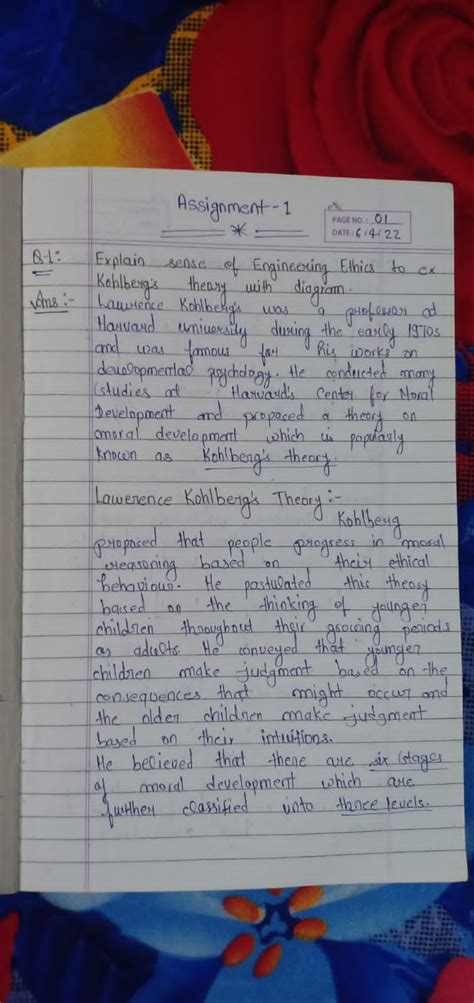 Assignment - 1
PAGE NO.: 01
DATE: 6/4/22
Q.1: Explain sense of Engineering Ethics to ex
Kohlberg's theory with diagram.
Ans :- Lawrence Kohlberg's was a professor at
Harvard university during the early 1970s
and was famous for his works on
developmental psychology. He conducted many
studies at Harvard's Center for Moral
Development and propaced a theory on
moral development which is popularly
known as Kohlberg's theory.
Lawerence Kohlberg's Theory :-
Kohlberg
propaced that people progress in moral
reasoning based on their ethical
behaviour. He pastulated this theory
based on the thinking of younger
children throughout their growing periods
as adults. He conveyed that younger
children make judgment based on the
consequences that might occur and
the older children make judgment
based on their intuitions.
He believed that there are six stages
of moral development which are
further classified into three levels.